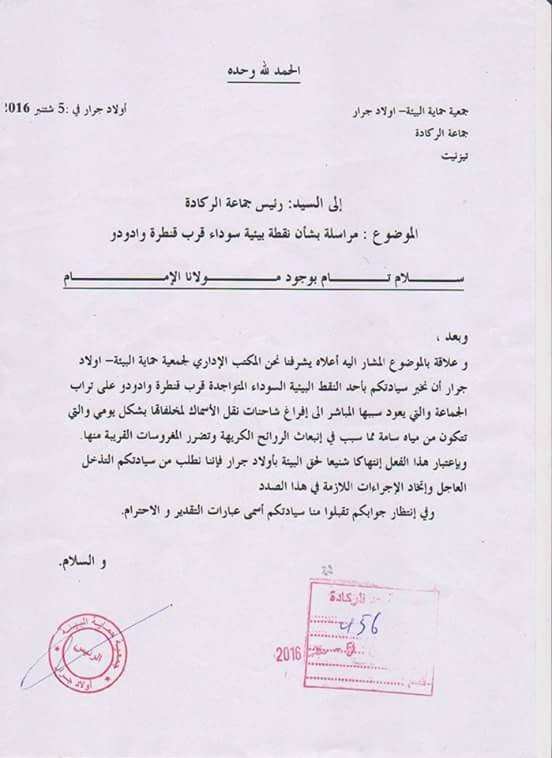 الحمد لله وحده
جمعية حماية البيئة– اولاد جرار
أولاد جرار في :5 شتنبر 2016
جماعة الركادة
تيزنيت
إلى السيد: رئيس جماعة الركادة
الموضوع : مراسلة بشأن نقطة بيئية سوداء قرب قنطرة وادودو
ســـلام تـــام بوجود مـــولانا الإمـــام
وبعد ،
و علاقة بالموضوع المشار اليه أعلاه يشرفنا نحن المكتب الإداري لجمعية حماية البيئة– اولاد
جرار أن نخبر سيادتكم بأحد النقط البيئية السوداء المتواجدة قرب قنطرة وادودو على تراب
الجماعة والتي يعود سببها المباشر الى إفراغ شاحنات نقل الأسماك لمخلفاتها بشكل يومي والتي
تتكون من مياه سامة مما سبب في إنبعاث الروائح الكريهة وتضرر المغروسات القريبة منها.
وبإعتبار هذا الفعل إنتهاكا شنيعا لحق البيئة بأولاد جرار فإننا نطلب من سيادتكم التدخل
العاجل وإتخاد الإجراءات اللازمة في هذا الصدد
وفي إنتظار جوابكم تقبلوا منا سيادتكم أسمى عبارات التقدير و الاحترام.
و السلام.
الركادة
456
2016
جمعية حماية البيئة
الرئيس
أولاد جرار